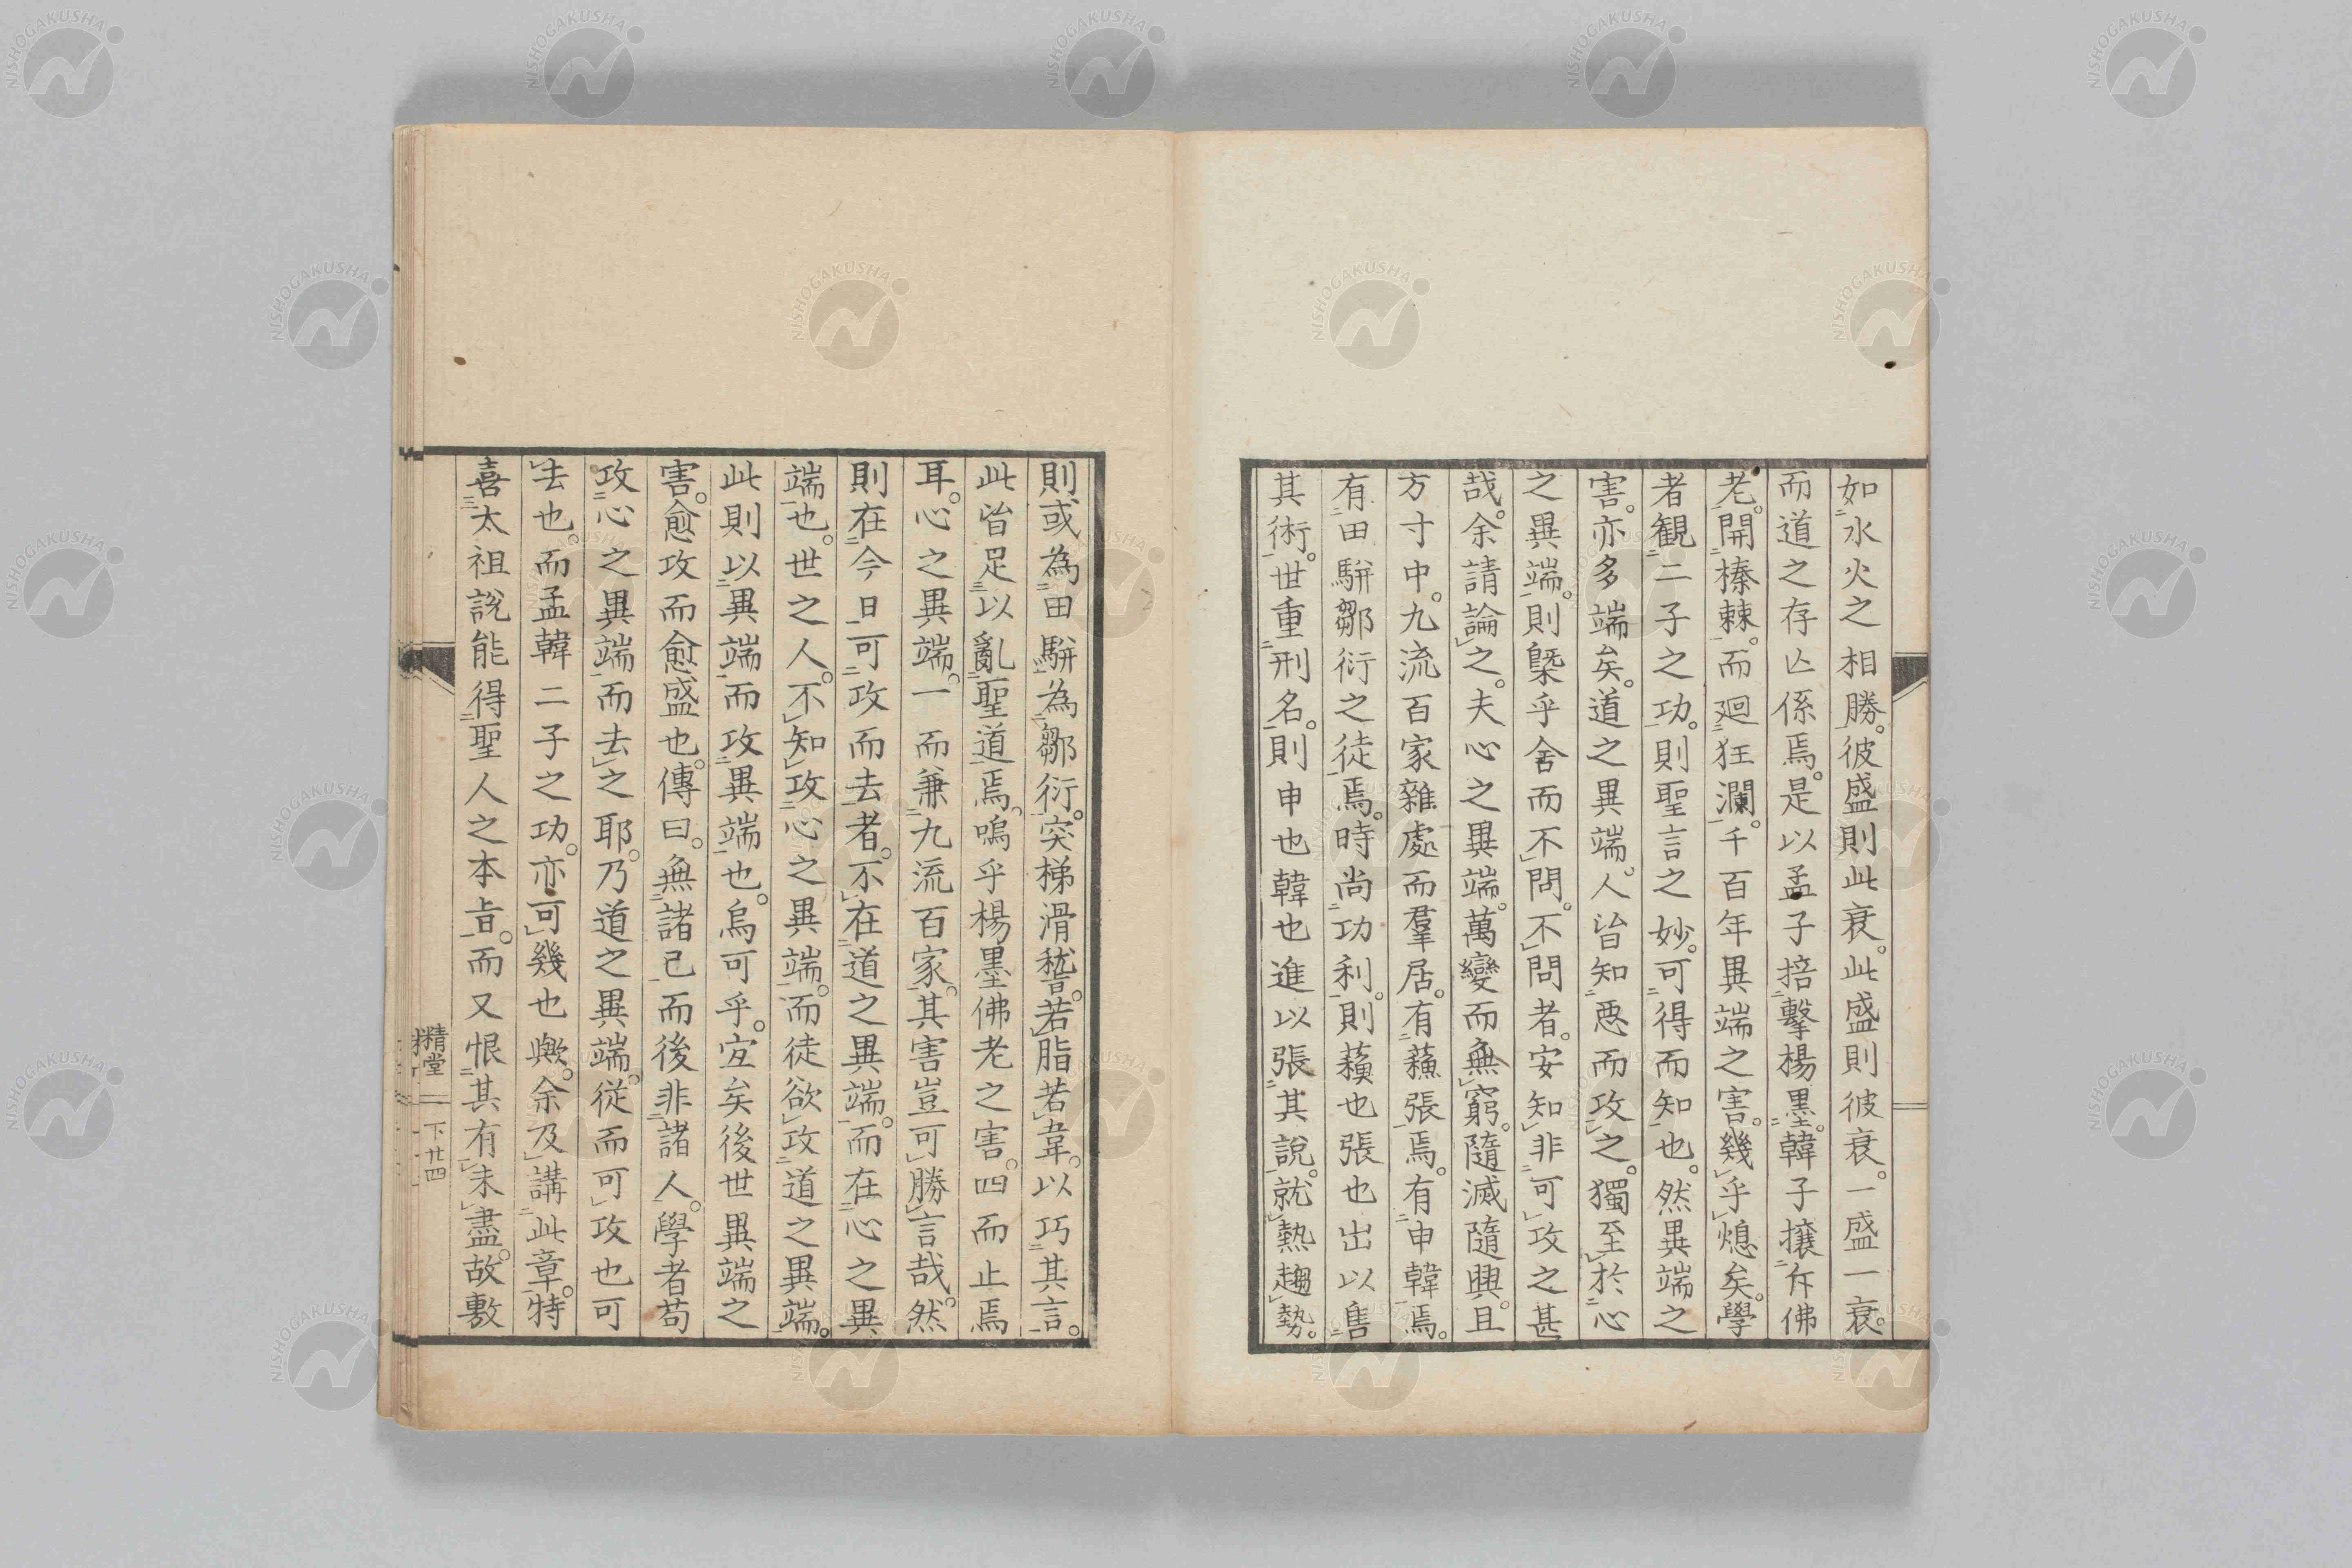 如水火之相勝。彼盛則此衰。此盛則彼衰。一盛一衰。
而道之存亾係焉。是以孟子掊擊楊墨。韓子攘斥佛
老。開榛棘。而廻狂瀾。千百年異端之害。幾乎熄矣。學
者観二子之功。則聖言之妙。可得而知也。然異端之
害。亦多端矣。道之異端。人皆知惡而攻之。獨至於心
之異端。則槩乎舍而不問。不問者。安知非可攻之甚
哉。余請論之。夫心之異端。萬變而無窮。隨滅隨興。且
方寸中。九流百家雜處而羣居。有蘓張焉。有申韓焉。
有田駢鄒衍之徒焉。時尚功利。則蘓也張也出以售
其術。世重刑名。則申也韓也進以張其說。就熱趨勢。
則或為田駢為鄒衍。突梯滑稽。若脂若韋。以巧其言。
此皆足以亂聖道焉。嗚乎楊墨佛老之害。四而止焉
耳。心之異端。一而兼九流百家。其害豈可勝言哉。然
則在今日可攻而去者。不在道之異端。而在心之異
端也。世之人。不知攻心之異端。而徒欲攻道之異端。
此則以異端而攻異端也。烏可乎。宜矣後世異端之
害。愈攻而愈盛也。傳曰。無諸己而後非諸人。學者苟
攻心之異端而去之耶。乃道之異端。從而可攻也可
去也。而孟韓二子之功。亦可幾也歟。余及講此章。特
喜太祖說能得聖人之本旨。而又恨其有未盡。故敷
精堂 下廿四